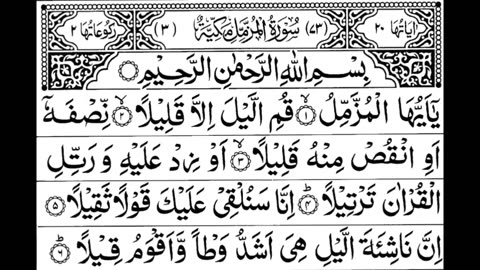 اٰیَاتُهَا ٢٠ (٧٣) سُوْرَةُ الْمُزَّمِّلِ مَكِّيَّةٌ (٣) رُكُوْعَاتُهَا ٢
بِسْمِ اللّٰهِ الرَّحْمٰنِ الرَّحِيْمِ
يٰۤاَيُّهَا الْمُزَّمِّلُ ١ قُمِ الَّيْلَ اِلَّا قَلِيْلًا ٢ نِّصْفَهٗۤ
اَوِ انْقُصْ مِنْهُ قَلِيْلًا ٣ اَوْ زِدْ عَلَيْهِ وَ رَتِّلِ
الْقُرْاٰنَ تَرْتِيْلًا ٤ اِنَّا سَنُلْقِيْ عَلَيْكَ قَوْلًا ثَقِيْلًا ٥
اِنَّ نَاشِئَةَ الَّيْلِ هِيَ اَشَدُّ وَطْاً وَّاَقْوَمُ قِيْلًا ٦